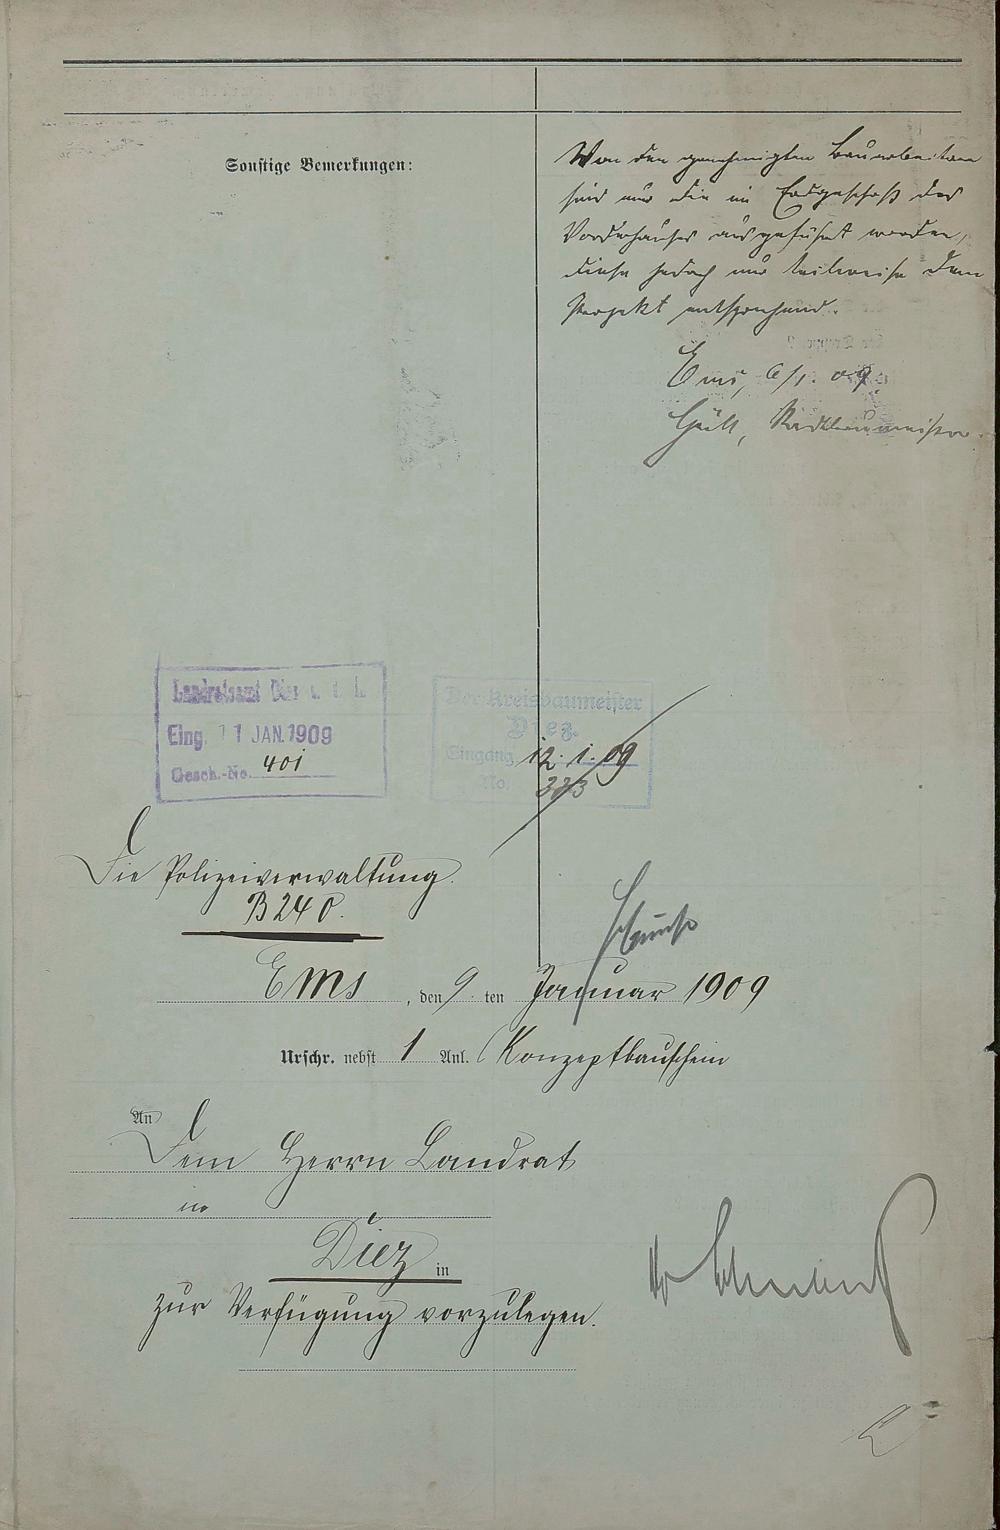 Sonstige Bemerkungen:
Von den genehmigten Bauarbeiten
sind nur die im Erdgeschoß des
Vorderhauses ausgeführt worden,
diese jedoch nur teilweise dem
Projekt entsprechend.
Ems, 6/1. 09.
Stadtbaumeister.
Landratsamt Diez
Eing. 11 JAN. 1909
Gesch.-No. 401
Der Kreisbaumeister
Diez.
Eingang 12. 1. 09
No. 333
Die Polizeiverwaltung.
B 240.
Ems, den 9. ten Januar 1909
Urschr. nebst 1 Anl. (Konzeptbauschein
An
Dem Herrn Landrat
in
Diez in
zur Verfügung vorzulegen.